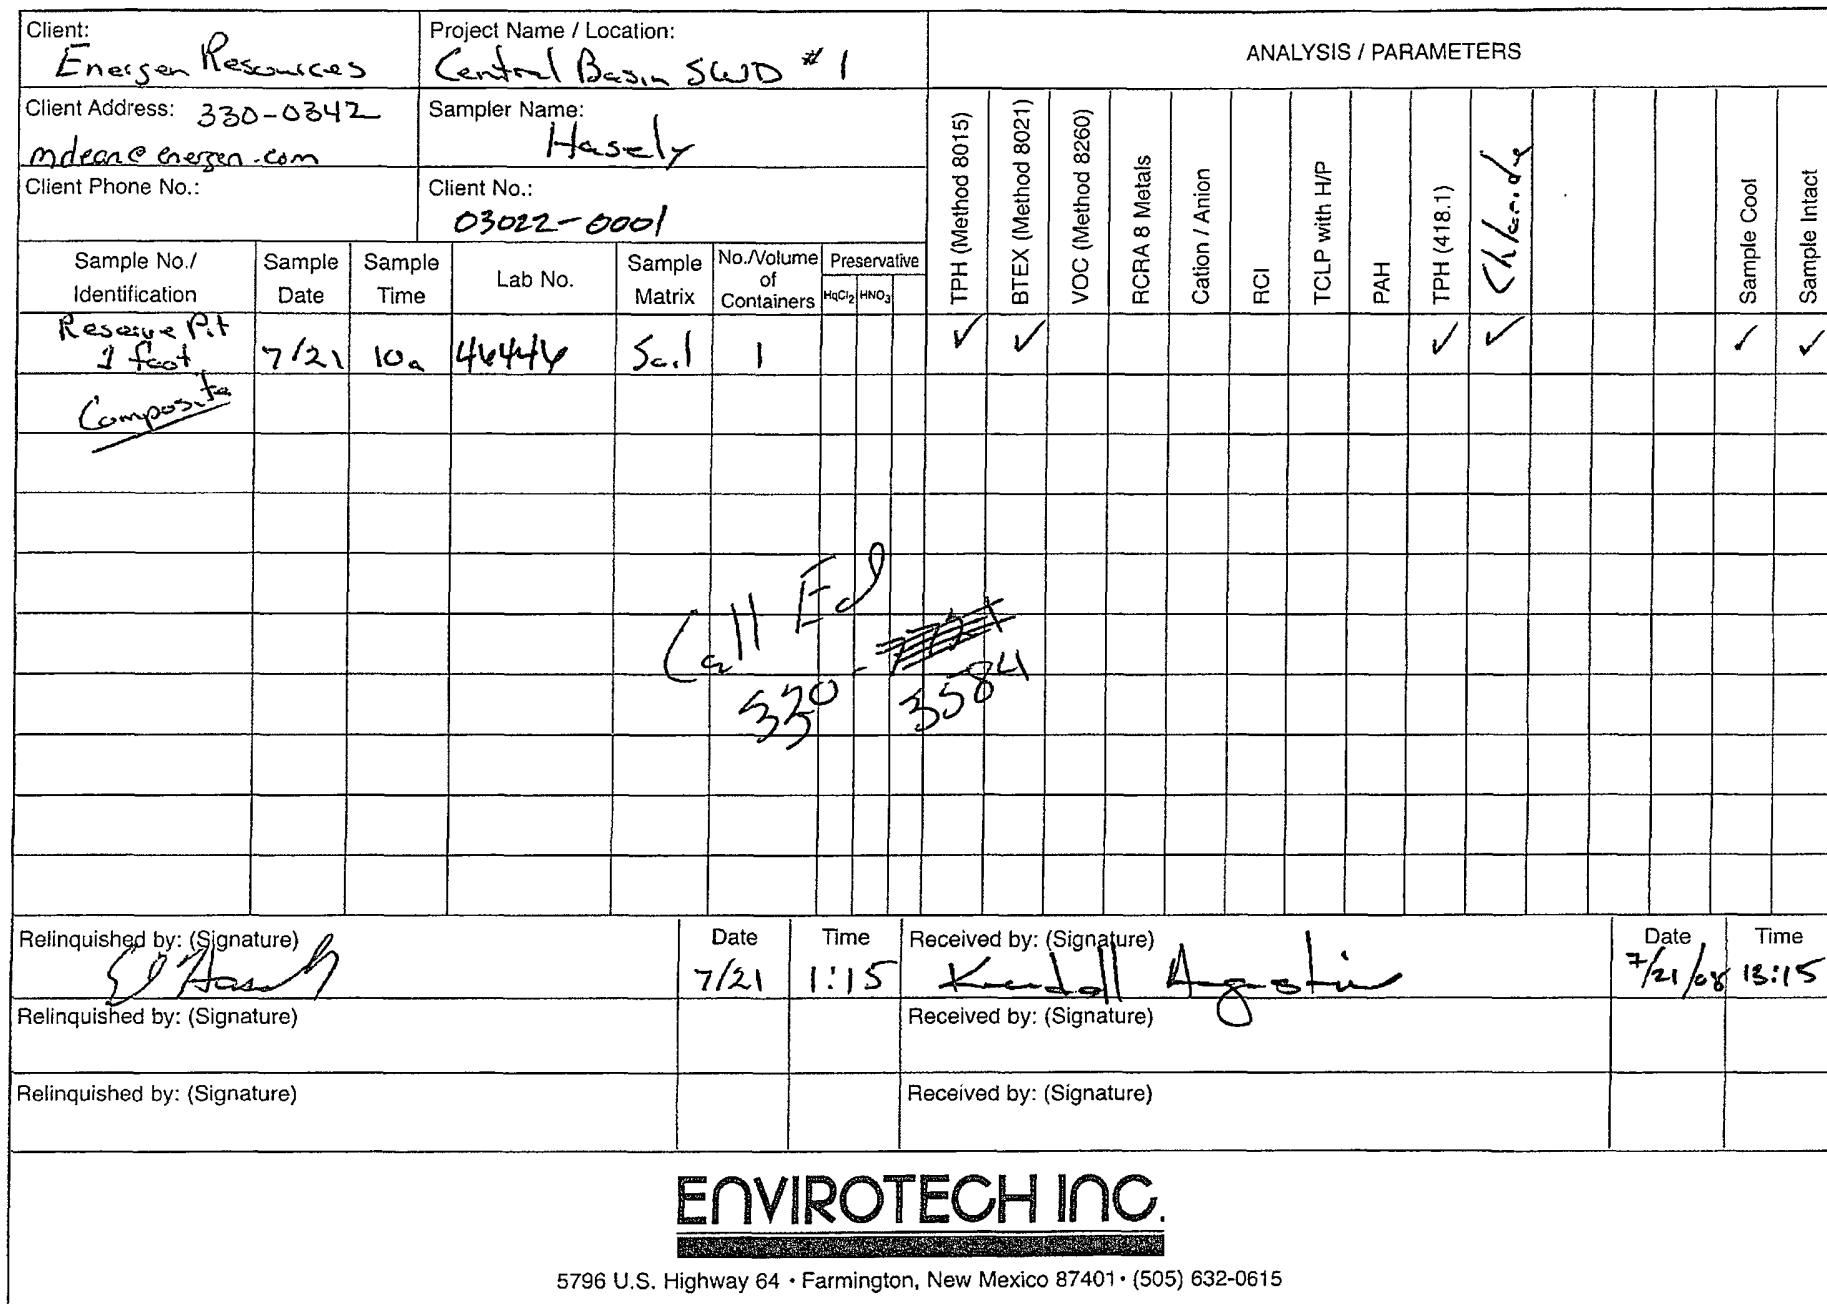 Client:
Energen Resources
Project Name / Location:
Central Basin SWD #1
ANALYSIS / PARAMETERS
Client Address: 330-0342
mdean@energen.com
Sampler Name:
Hasely
Client Phone No.:
Client No.:
03022-0001
Sample No./
Identification
Sample
Date
Sample
Time
Lab No.
Sample
Matrix
No./Volume
of
Containers
Preservative
HgCl2 HNO3
TPH (Method 8015)
BTEX (Method 8021)
VOC (Method 8260)
RCRA 8 Metals
Cation / Anion
RCI
TCLP with H/P
PAH
TPH (418.1)
Chloride
Sample Cool
Sample Intact
Reserve Pit
1 foot 7/21 10a 46446 Soil 1 ✓ ✓ ✓ ✓ ✓ ✓
Composite
Call Ed
330-
3584
Relinquished by: (Signature)
Ed Hasely
Date
7/21
Time
1:15
Received by: (Signature)
Kendall Agustin
Date
7/21/08
Time
13:15
Relinquished by: (Signature)
Received by: (Signature)
Relinquished by: (Signature)
Received by: (Signature)
ENVIROTECH INC.
5796 U.S. Highway 64 • Farmington, New Mexico 87401 • (505) 632-0615